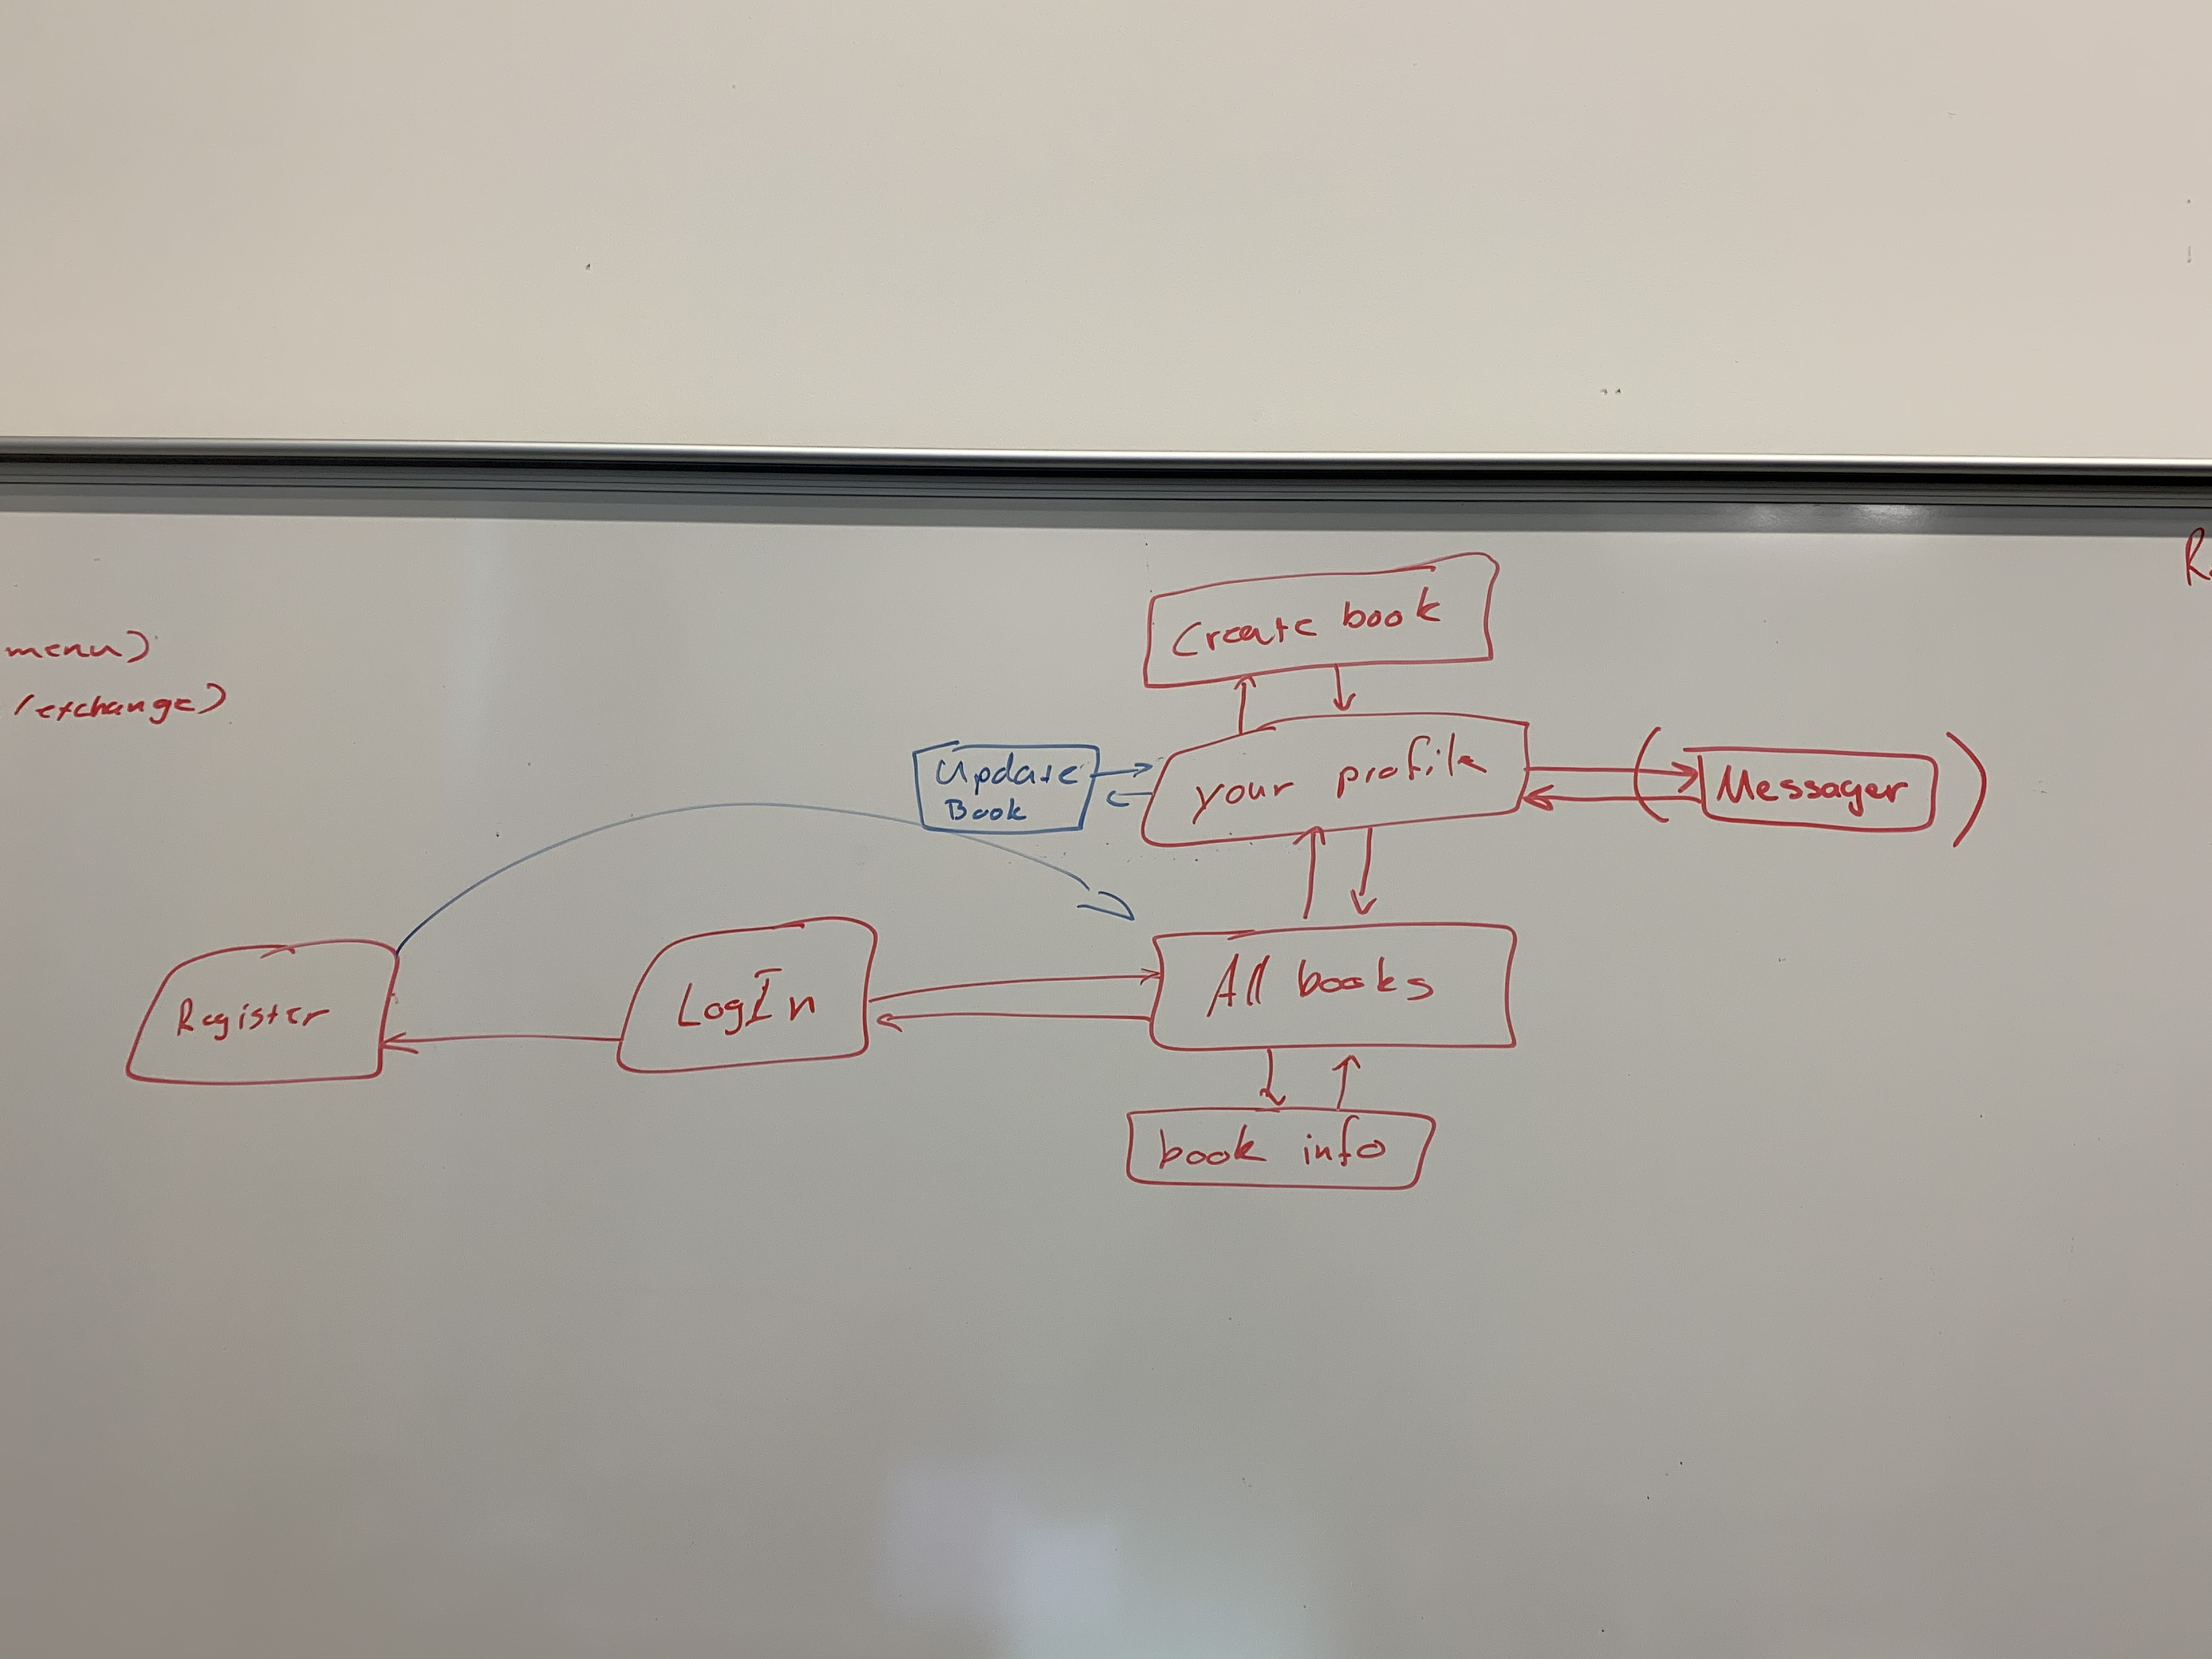 menu)
/exchange)
Create book
Update
Book
your profile
(Messager)
Register
LogIn
All books
book info